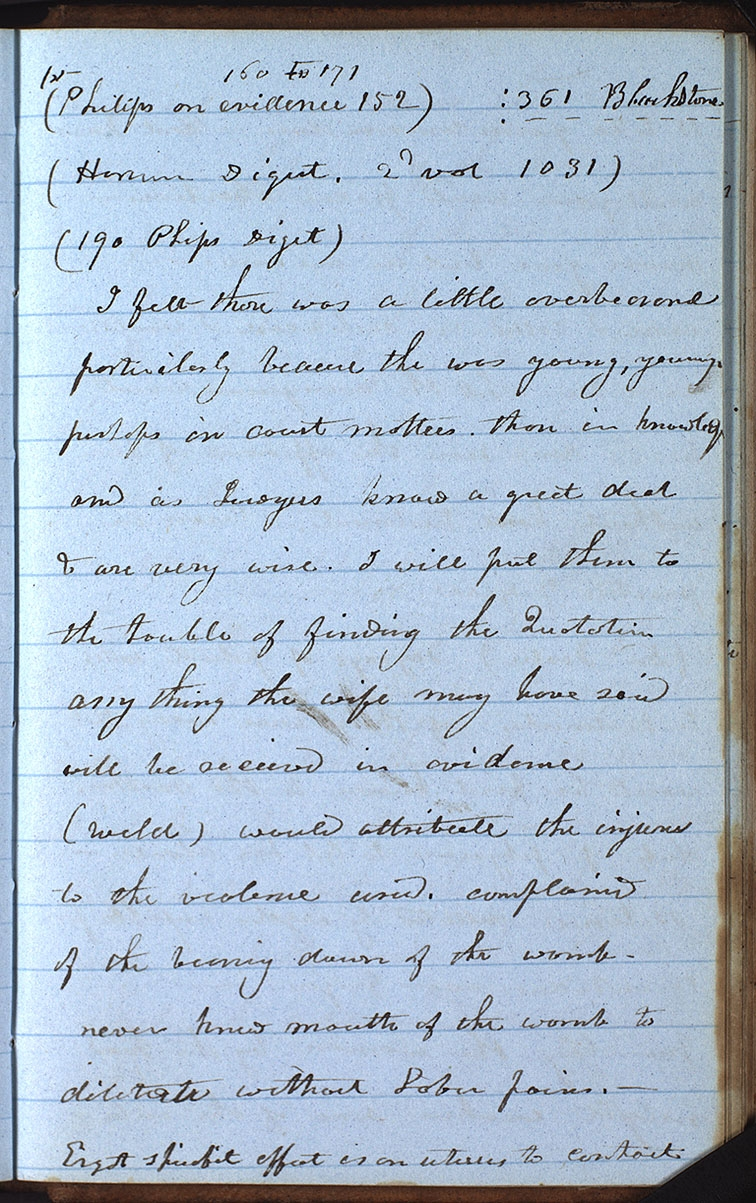 160 to 171
(Philips on evidence 152) : 361 Blackstone
( Digest. 2d vol 1031)
(190 Phips Digest)
I felt there was a little
particularly because the was young, young
perhaps in court matters. than in knowledg
and as Lawyers know a great deal
& are very wise. I will put them to
the trouble of finding the Quotation
any thing the wife may have said
will be received in evidence
(weld) would attribute the injuries
to the violence used. complained
of the bearing down of the womb -
never knew mouth of the womb to
dilitate without Labor pains. —
Ergot effect is on uterus to contract